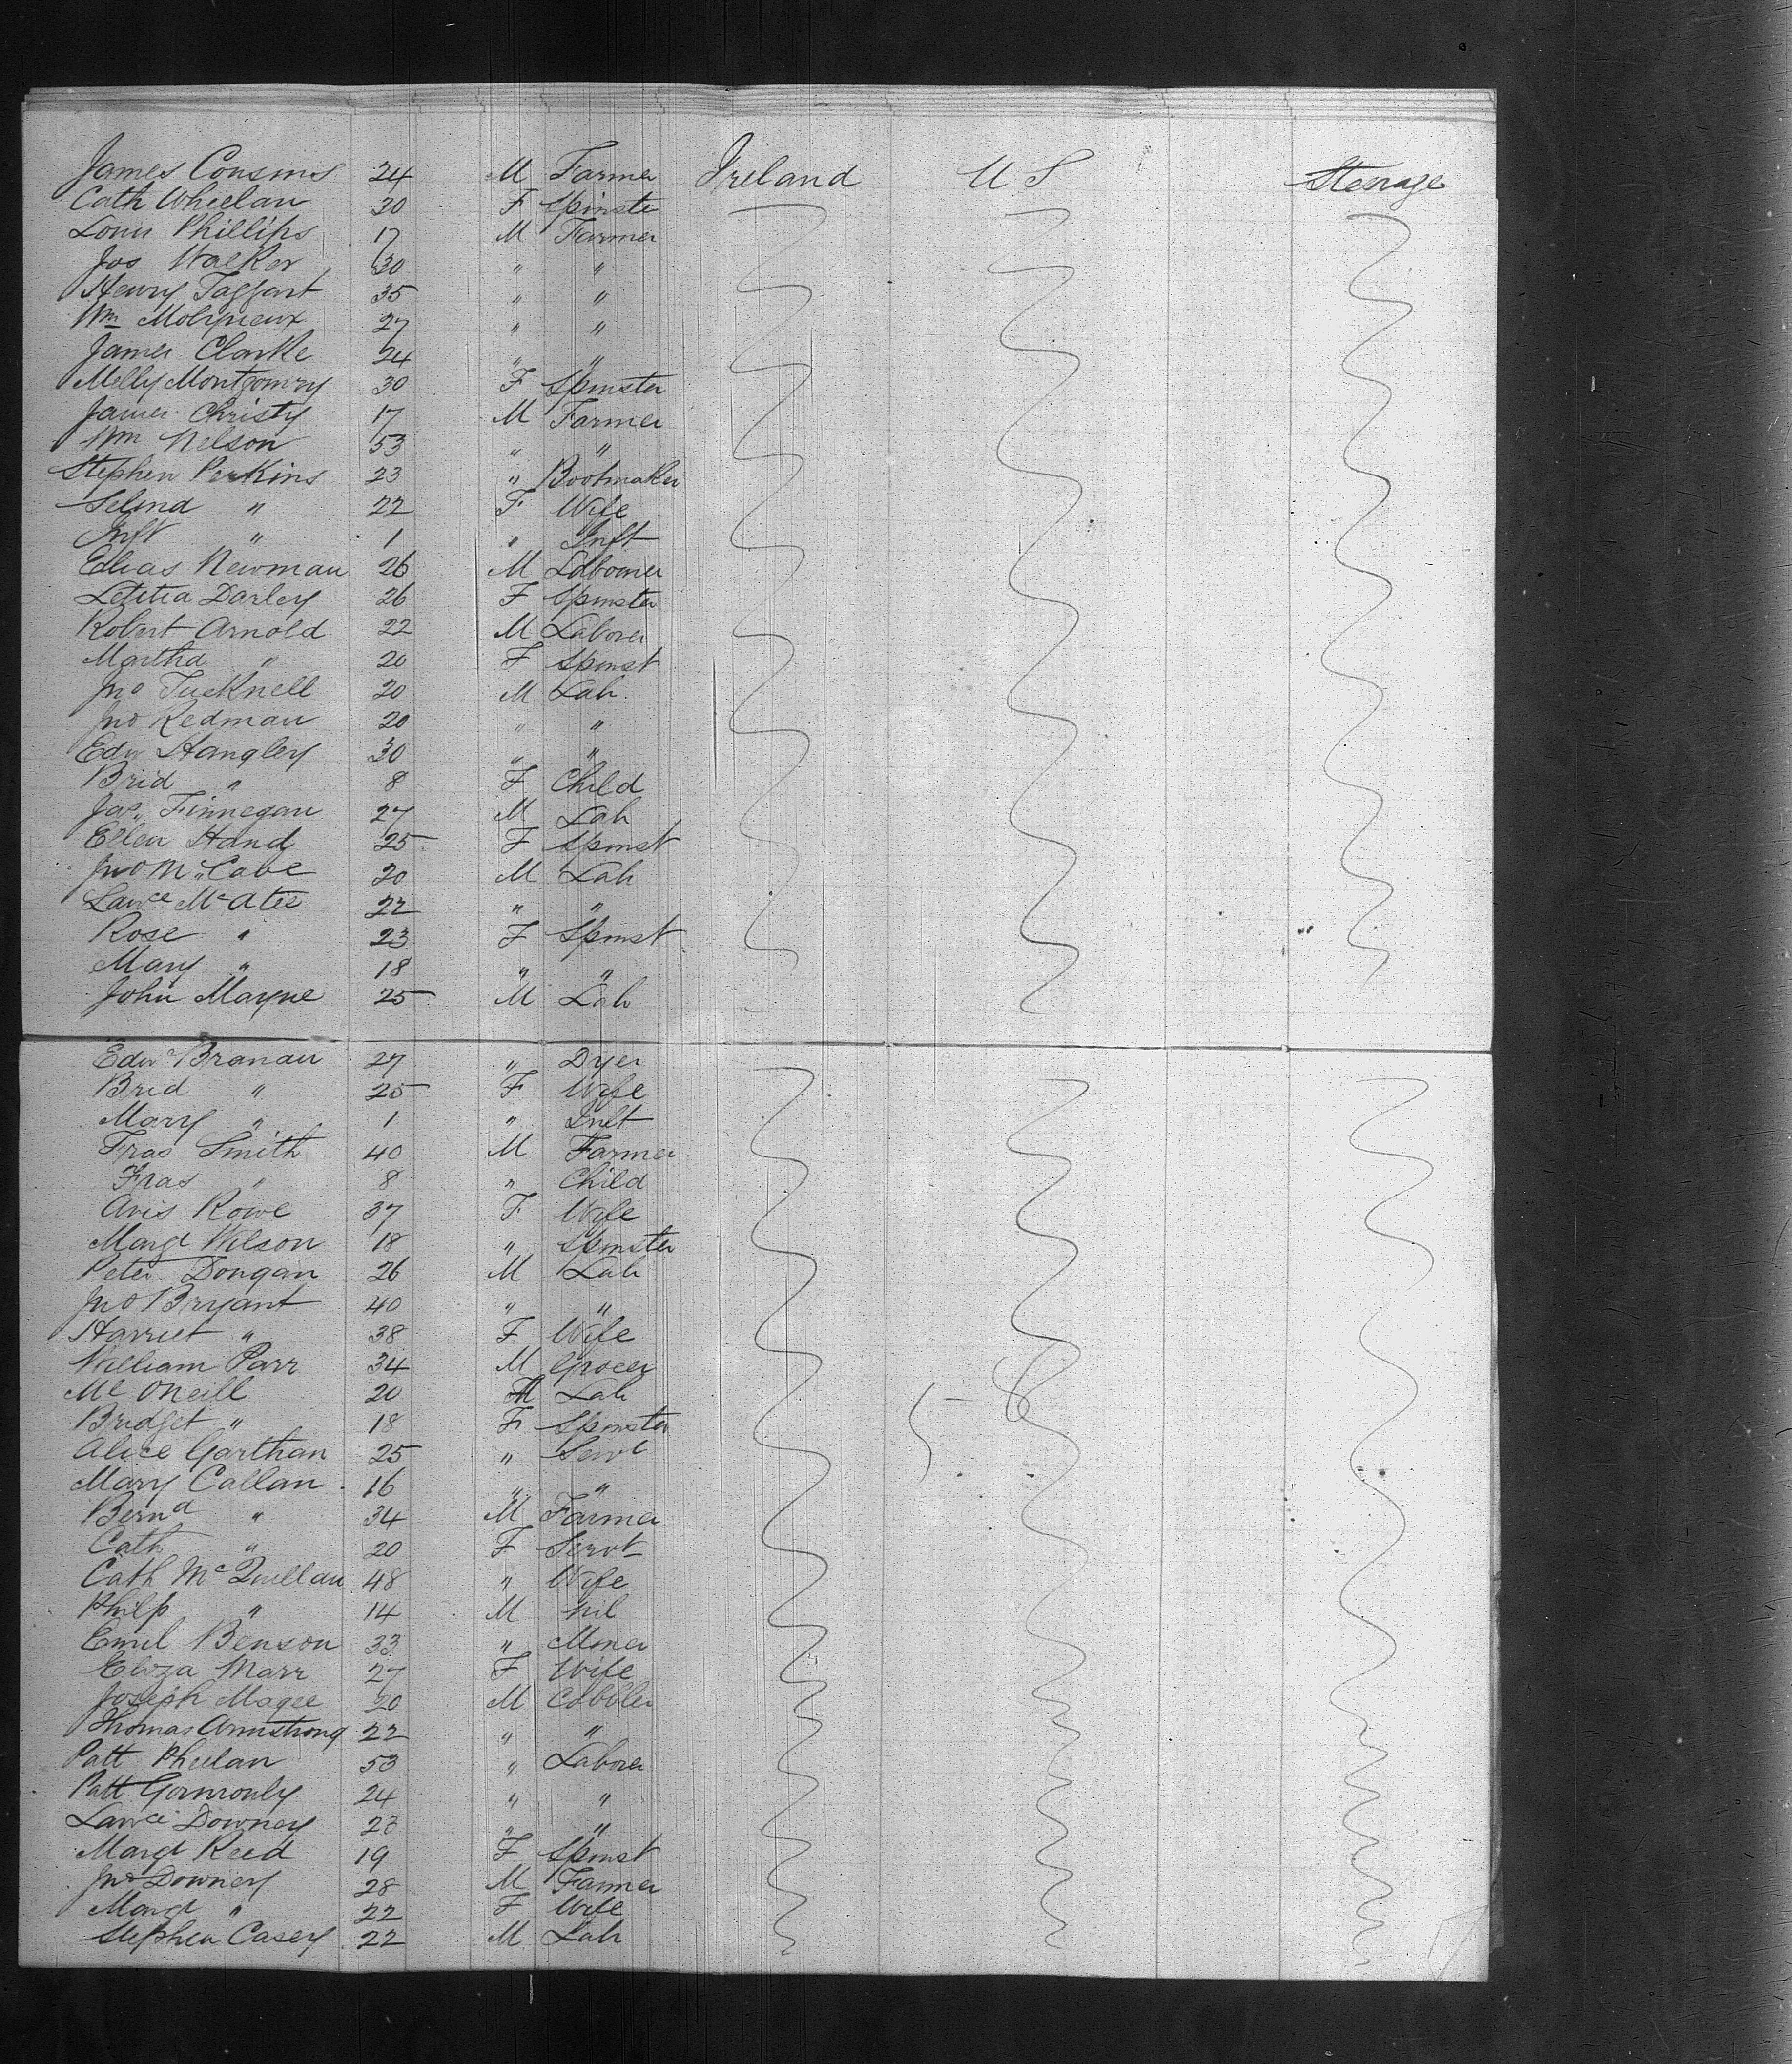 James Cousins 24 M Farmer Ireland U S Steerage
Cath Wheelan 30 F Spinste
Louis Phillips 17 M Farmer
Jos Walker 30 " "
Henry Taggart 35 " "
Wm Molyneux 27 " "
James Clarke 24 " "
Melly Montgomry 30 F Spinster
James Christy 17 M Farmer
Wm Nelson 53 " "
Stephen Perkins 23 " Bootmaker
Selina " 22 F Wife
Inft " 1 " Inft
Elias Newman 26 M Labourer
Letitia Darley 26 F Spinster
Robert Arnold 22 M Laborer
Martha " 20 F Spinst
Jno Tucknell 20 M Lab.
Jno Redman 20 " "
Edw Hangley 30 " "
Brid " 8 F Child
Jas Finnegan 27 M Lab
Ellen Hand 25 F Spinst
Jno McCabe 20 M Lab
Lawce McAtee 22 " "
Rose " 23 F Spinst
Mary " 18 " "
John Mayne 25 M Lab
Edw Branan 27 " Dyer
Brid " 25 F Wife
Mary " 1 " Inft
Fras Smith 40 M Farmer
Fras " 8 " Child
Avis Rowe 37 F Wife
Margt Wilson 18 " Spinster
Peter Dongan 26 M Lab
Jno Bryant 40 " "
Harriet " 38 F Wife
William Parr 34 M Grocer
Ml ONeill 20 M Lab
Bridget " 18 F Spinster
Alice Garthan 25 " Servt
Mary Callan 16 " "
Bernd " 34 M Farmer
Cath " 20 F Servt
Cath McQuillan 48 " Wife
Philp " 14 M Nil
Emil Benson 33 " Miner
Eliza Marr 27 F Wife
Joseph Magee 20 M Cobbler
Thomas Armstrong 22 " "
Patt Phelan 53 " Laborer
Patt Gormonly 24 " "
Lawce Downey 23 " "
Margt Reed 19 F Spinst
Jno Downey 28 M Farmer
Margt " 22 F Wife
Stephen Casey 22 M Lab